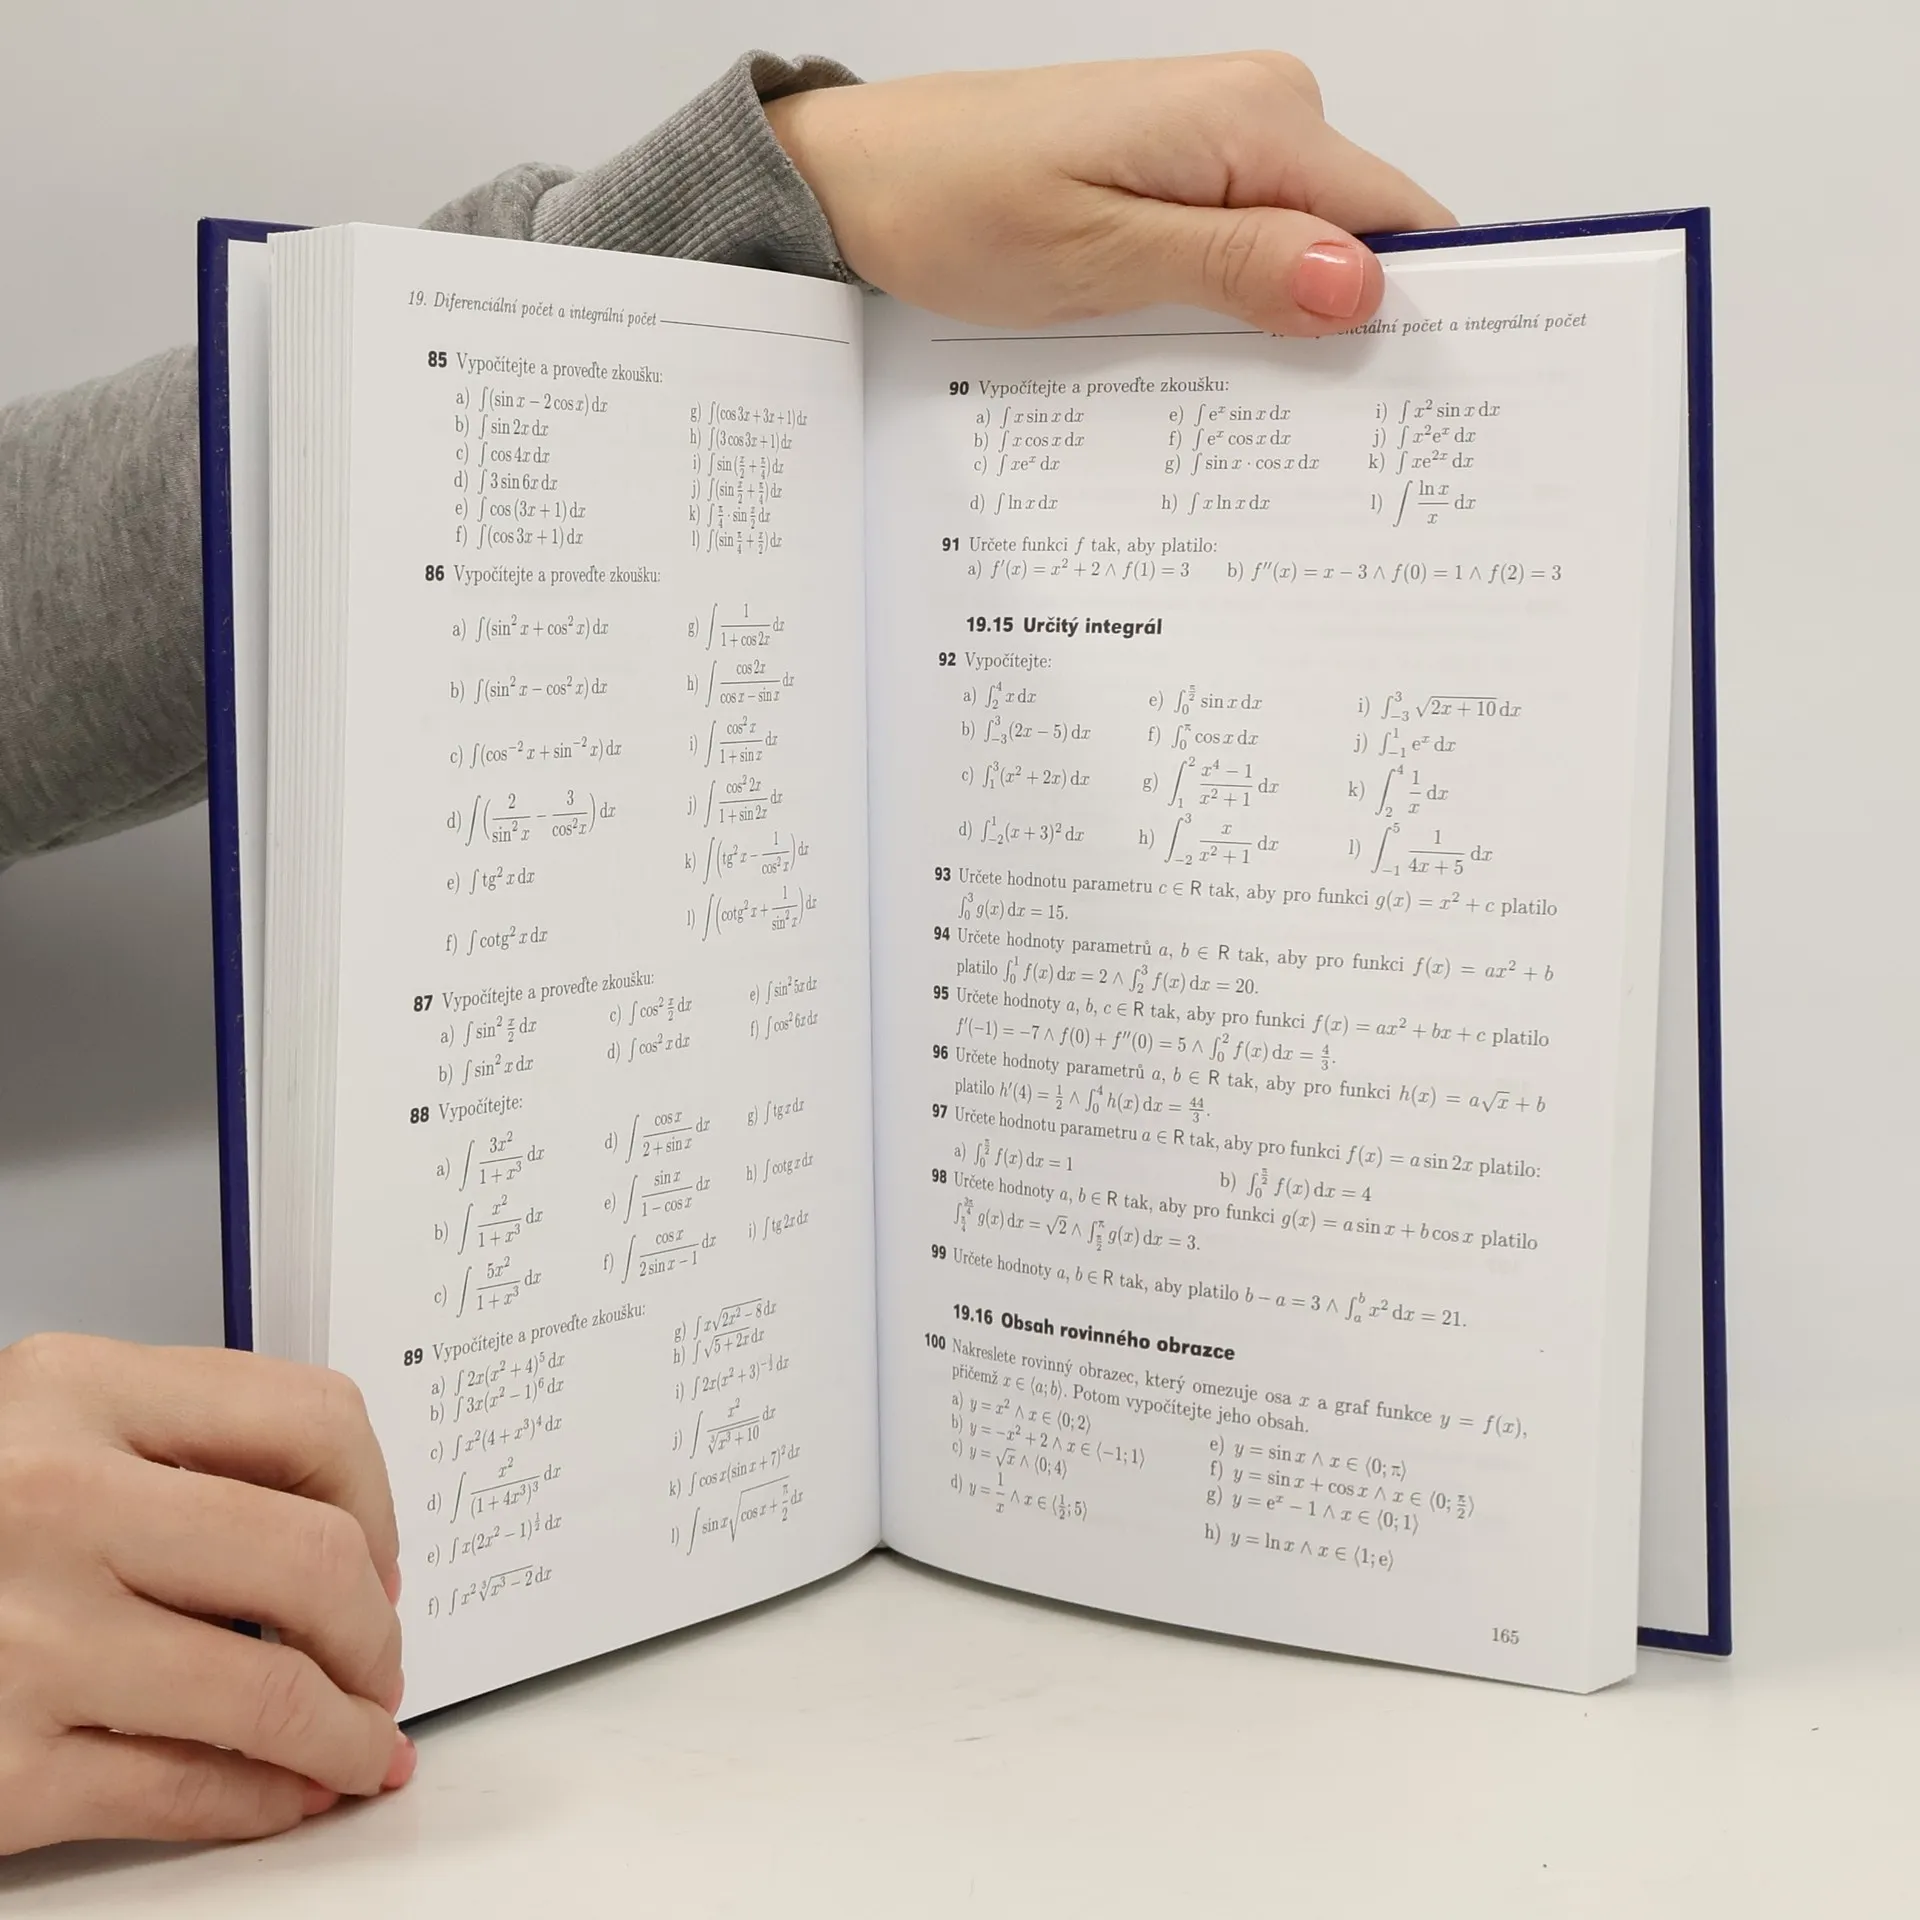 19. Diferenciální počet a integrální počet
85 Vypočítejte a proveďte zkoušku:
a) ∫(sin x − 2 cos x) dx
b) ∫ sin 2x dx
c) ∫ cos 4x dx
d) ∫ 3 sin 6x dx
e) ∫ cos (3x + 1) dx
f) ∫(cos 3x + 1) dx
g) ∫(cos 3x + 3x + 1) dx
h) ∫(3 cos 3x + 1) dx
i) ∫ sin (x/2 + π/4) dx
j) ∫(sin x/2 + π/4) dx
k) ∫ π/4 · sin x/2 dx
l) ∫(sin π/4 + x/2) dx
86 Vypočítejte a proveďte zkoušku:
a) ∫(sin² x + cos² x) dx
b) ∫(sin² x − cos² x) dx
c) ∫(cos⁻² x + sin⁻² x) dx
d) ∫(2/sin² x − 3/cos² x) dx
e) ∫ tg² x dx
f) ∫ cotg² x dx
g) ∫ 1/(1 + cos 2x) dx
h) ∫ cos 2x/(cos x − sin x) dx
i) ∫ cos² x/(1 + sin x) dx
j) ∫ cos² 2x/(1 + sin 2x) dx
k) ∫(tg² x − 1/cos² x) dx
l) ∫(cotg² x + 1/sin² x) dx
87 Vypočítejte a proveďte zkoušku:
a) ∫ sin² x/2 dx
b) ∫ sin² x dx
c) ∫ cos² x/2 dx
d) ∫ cos² x dx
e) ∫ sin² 5x dx
f) ∫ cos² 6x dx
88 Vypočítejte:
a) ∫ 3x²/(1 + x³) dx
b) ∫ x²/(1 + x³) dx
c) ∫ 5x²/(1 + x³) dx
d) ∫ cos x/(2 + sin x) dx
e) ∫ sin x/(1 − cos x) dx
f) ∫ cos x/(2 sin x − 1) dx
g) ∫ tg x dx
h) ∫ cotg x dx
i) ∫ tg 2x dx
89 Vypočítejte a proveďte zkoušku:
a) ∫ 2x(x² + 4)⁵ dx
b) ∫ 3x(x² − 1)⁶ dx
c) ∫ x²(4 + x³)⁴ dx
d) ∫ x²/(1 + 4x³)³ dx
e) ∫ x(2x² − 1)^(1/2) dx
f) ∫ x² ∛(x³ − 2) dx
g) ∫ x√(2x² − 8) dx
h) ∫ √(5 + 2x) dx
i) ∫ 2x(x² + 3) dx
j) ∫ x²/∛(x³ + 10) dx
k) ∫ cos x(sin x + 7)² dx
l) ∫ sin x √(cos x + π/2) dx
ciální počet a integrální počet
90 Vypočítejte a proveďte zkoušku:
a) ∫ x sin x dx e) ∫ eˣ sin x dx i) ∫ x² sin x dx
b) ∫ x cos x dx f) ∫ eˣ cos x dx j) ∫ x²eˣ dx
c) ∫ xeˣ dx g) ∫ sin x · cos x dx k) ∫ xe²ˣ dx
d) ∫ ln x dx h) ∫ x ln x dx l) ∫ ln x/x dx
91 Určete funkci f tak, aby platilo:
a) f′(x) = x² + 2 ∧ f(1) = 3 b) f″(x) = x − 3 ∧ f(0) = 1 ∧ f(2) = 3
19.15 Určitý integrál
92 Vypočítejte:
a) ∫₂⁴ x dx e) ∫₀^(π/2) sin x dx i) ∫₋₃³ √(2x + 10) dx
b) ∫₋₃³ (2x − 5) dx f) ∫₀^π cos x dx j) ∫₋₁¹ eˣ dx
c) ∫₁³ (x² + 2x) dx g) ∫₁² (x⁴ − 1)/(x² + 1) dx k) ∫₂⁴ 1/x dx
d) ∫₋₂¹ (x + 3)² dx h) ∫₋₂³ x/(x² + 1) dx l) ∫₋₁⁵ 1/(4x + 5) dx
93 Určete hodnotu parametru c ∈ R tak, aby pro funkci g(x) = x² + c platilo
∫₀³ g(x) dx = 15.
94 Určete hodnoty parametrů a, b ∈ R tak, aby pro funkci f(x) = ax² + b
platilo ∫₀¹ f(x) dx = 2 ∧ ∫₂³ f(x) dx = 20.
95 Určete hodnoty a, b, c ∈ R tak, aby pro funkci f(x) = ax² + bx + c platilo
f′(−1) = −7 ∧ f(0) + f″(0) = 5 ∧ ∫₀² f(x) dx = 4/3.
96 Určete hodnoty parametrů a, b ∈ R tak, aby pro funkci h(x) = a√x + b
platilo h′(4) = 1/2 ∧ ∫₀⁴ h(x) dx = 44/3.
97 Určete hodnotu parametru a ∈ R tak, aby pro funkci f(x) = a sin 2x platilo:
a) ∫₀^(π/2) f(x) dx = 1 b) ∫₀^(π/2) f(x) dx = 4
98 Určete hodnoty a, b ∈ R tak, aby pro funkci g(x) = a sin x + b cos x platilo
∫_(π/4)^(3π/4) g(x) dx = √2 ∧ ∫_(π/2)^π g(x) dx = 3.
99 Určete hodnoty a, b ∈ R tak, aby platilo b − a = 3 ∧ ∫ₐᵇ x² dx = 21.
19.16 Obsah rovinného obrazce
100 Nakreslete rovinný obrazec, který omezuje osa x a graf funkce y = f(x),
přičemž x ∈ ⟨a; b⟩. Potom vypočítejte jeho obsah.
a) y = x² ∧ x ∈ ⟨0; 2⟩
b) y = −x² + 2 ∧ x ∈ ⟨−1; 1⟩
c) y = √x ∧ ⟨0; 4⟩
d) y = 1/x ∧ x ∈ ⟨1/2; 5⟩
e) y = sin x ∧ x ∈ ⟨0; π⟩
f) y = sin x + cos x ∧ x ∈ ⟨0; π/2⟩
g) y = eˣ − 1 ∧ x ∈ ⟨0; 1⟩
h) y = ln x ∧ x ∈ ⟨1; e⟩
165